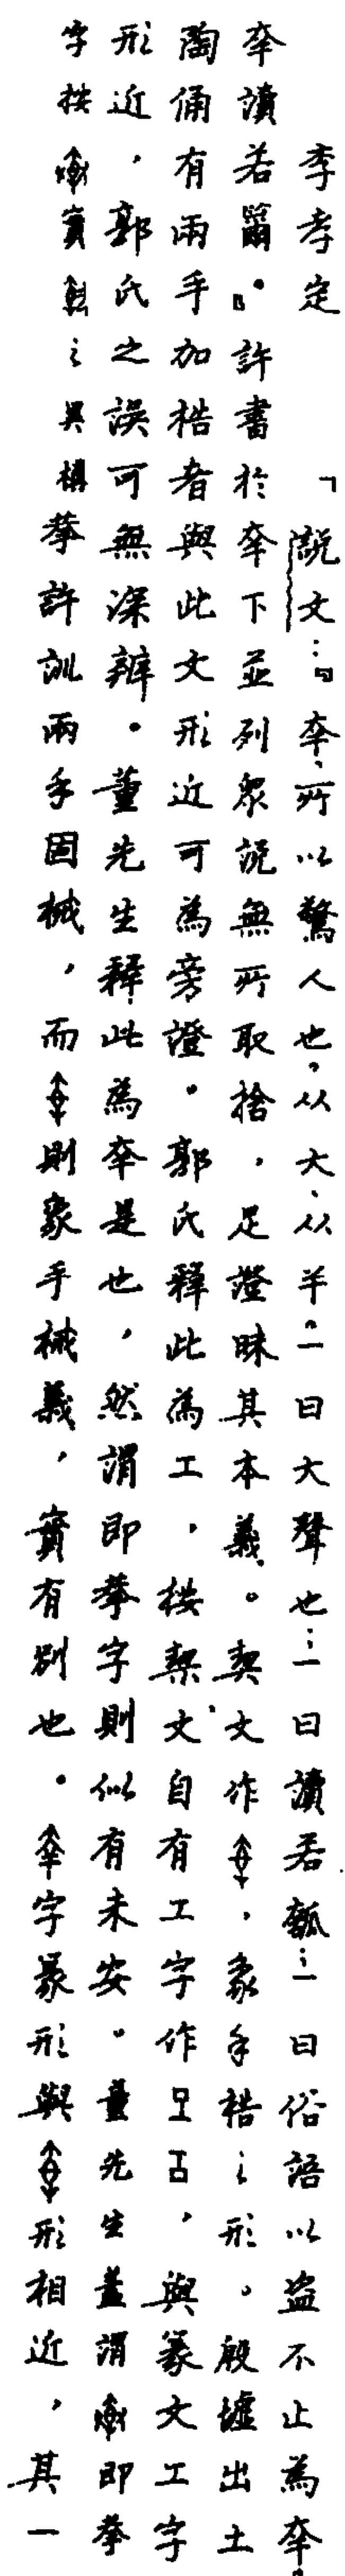 李孝定　「說文：『㚔、所以驚人也。从大、从羊。一曰大聲也：一曰讀若瓠：一曰俗語以盜不止為㚔。
㚔讀若籋。』許書於㚔下並列眾說無所取捨，足證昧其本義。契文作，象手梏之形。殷墟出土
陶俑有兩手加梏者與此文形近可為旁證。郭氏釋此為工，按栔文、自有工字作，與篆文工字
形近，郭氏之誤可無深辨。董先生釋此為㚔是也，然謂即拲字則似有未安。董先生蓋謂即拲
字按實之異構拲許訓兩手固械，而則象手械義，實有別也。㚔字篆形與形相近，其一